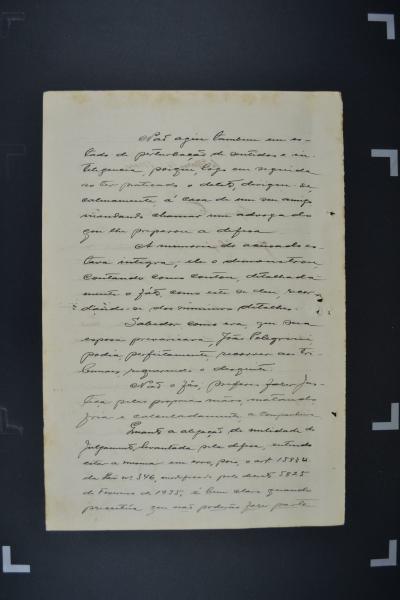 Não agiu tambem em es-
tado de perturbação de sentidos e in-
telligencia, porque, logo em seguida
ao ter praticado o delicto, dirigiu-se,
calmamente á casa de um seu amigo
mandando chamar um advogado
que lhe preparou a defesa
A memoria do accusado es-
tava integra, elle o demonstrou,
contando como contou, detalhada-
mente o fáto, como este se deu, recor-
dando-se dos minimos detalhes.
Sabedor como era, que sua
esposa prevaricava, João Pelegrini
podia, perfeitamente, recorrer aos tri-
bunaes, requerendo o desquite.
Não o fez, preferiu fazer jus-
tiça pelas proprias mãos, matando
fria e calculadamente a
Quanto a allegação de nullidade do
julgamento, levantada pela defesa, entendo
estar a mesma em erro, pois, o art.
da Lei nº 346, modificado pelo decreto 5825
de Fevereiro de 1933, é bem claro quando
prescreve que não poderão fazer parte